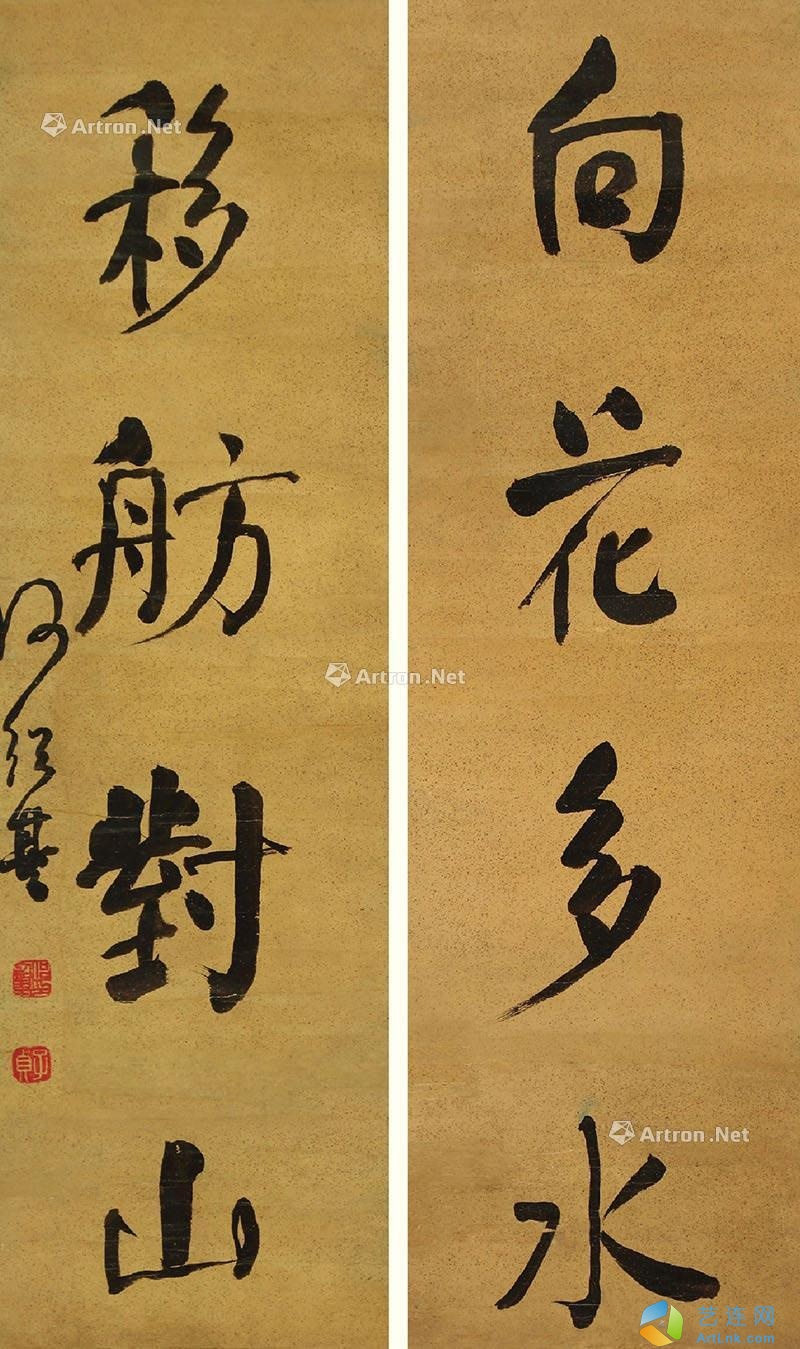 向花多水
移舫對山
何紹基
子貞
Artron.Net
Artron.Net
Artron.Net
艺连网
ArtLnk.Com